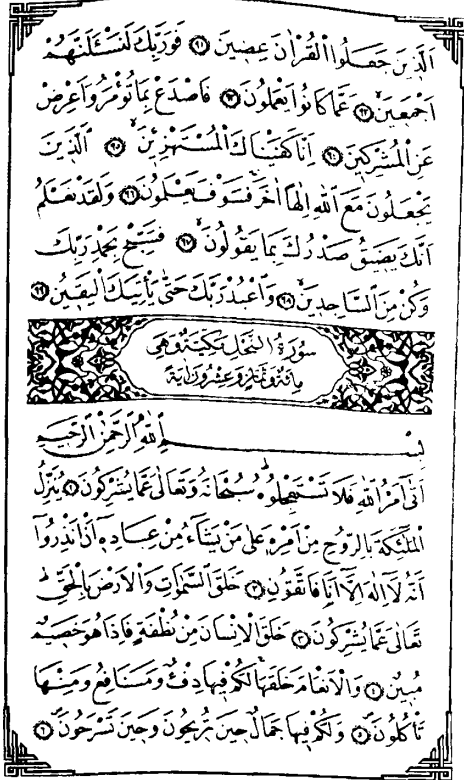 اَلَّذٖينَ جَعَلُوا الْقُرْاٰنَ عِضٖينَ ﴿٩١﴾ فَوَرَبِّكَ لَنَسْـَٔلَنَّهُمْ
اَجْمَعٖينَۙ ﴿٩٢﴾ عَمَّا كَانُوا يَعْمَلُونَ ﴿٩٣﴾ فَاصْدَعْ بِمَا تُؤْمَرُ وَاَعْرِضْ
عَنِ الْمُشْرِكٖينَ ﴿٩٤﴾ اِنَّا كَفَيْنَاكَ الْمُسْتَهْزِءٖينَۙ ﴿٩٥﴾ اَلَّذٖينَ
يَجْعَلُونَ مَعَ اللّٰهِ اِلٰهًا اٰخَرَۚ فَسَوْفَ يَعْلَمُونَ ﴿٩٦﴾ وَلَقَدْ نَعْلَمُ
اَنَّكَ يَضٖيقُ صَدْرُكَ بِمَا يَقُولُونَۙ ﴿٩٧﴾ فَسَبِّحْ بِحَمْدِ رَبِّكَ
وَكُنْ مِنَ السَّاجِدٖينَۙ ﴿٩٨﴾ وَاعْبُدْ رَبَّكَ حَتّٰى يَاْتِيَكَ الْيَقٖينُ ﴿٩٩﴾
سُورَةُ النَّحْلِ مَكِّيَّةٌ وَهِيَ
مِائَةٌ وَثَمَانٍ وَعِشْرُونَ اٰيَةً
بِسْمِ اللّٰهِ الرَّحْمٰنِ الرَّحٖيمِ
اَتٰٓى اَمْرُ اللّٰهِ فَلَا تَسْتَعْجِلُوهُۜ سُبْحَانَهُ وَتَعَالٰى عَمَّا يُشْرِكُونَ ﴿١﴾ يُنَزِّلُ
الْمَلٰٓئِكَةَ بِالرُّوحِ مِنْ اَمْرِهٖ عَلٰى مَنْ يَشَٓاءُ مِنْ عِبَادِهٖٓ اَنْ اَنْذِرُٓوا
اَنَّهُ لَٓا اِلٰهَ اِلَّٓا اَنَا فَاتَّقُونِ ﴿٢﴾ خَلَقَ السَّمٰوَاتِ وَالْاَرْضَ بِالْحَقِّۜ
تَعَالٰى عَمَّا يُشْرِكُونَ ﴿٣﴾ خَلَقَ الْاِنْسَانَ مِنْ نُطْفَةٍ فَاِذَا هُوَ خَصٖيمٌ
مُبٖينٌ ﴿٤﴾ وَالْاَنْعَامَ خَلَقَهَاۚ لَكُمْ فٖيهَا دِفْءٌ وَمَنَافِعُ وَمِنْهَا
تَاْكُلُونَۖ ﴿٥﴾ وَلَكُمْ فٖيهَا جَمَالٌ حٖينَ تُرٖيحُونَ وَحٖينَ تَسْرَحُونَۖ ﴿٦﴾